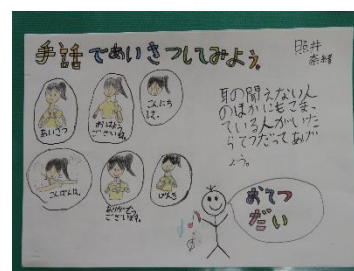 手話であいさつしてみよう。
照井
奈緒
あいさつ
おはよう
ございます。
こんにち
は。
こんばんは。
ありがとう
ございます。
げんき
耳の聞えない人
のほかにもこまっ
ている人がいた
らてつだってあげ
よう。
おてつ
だい